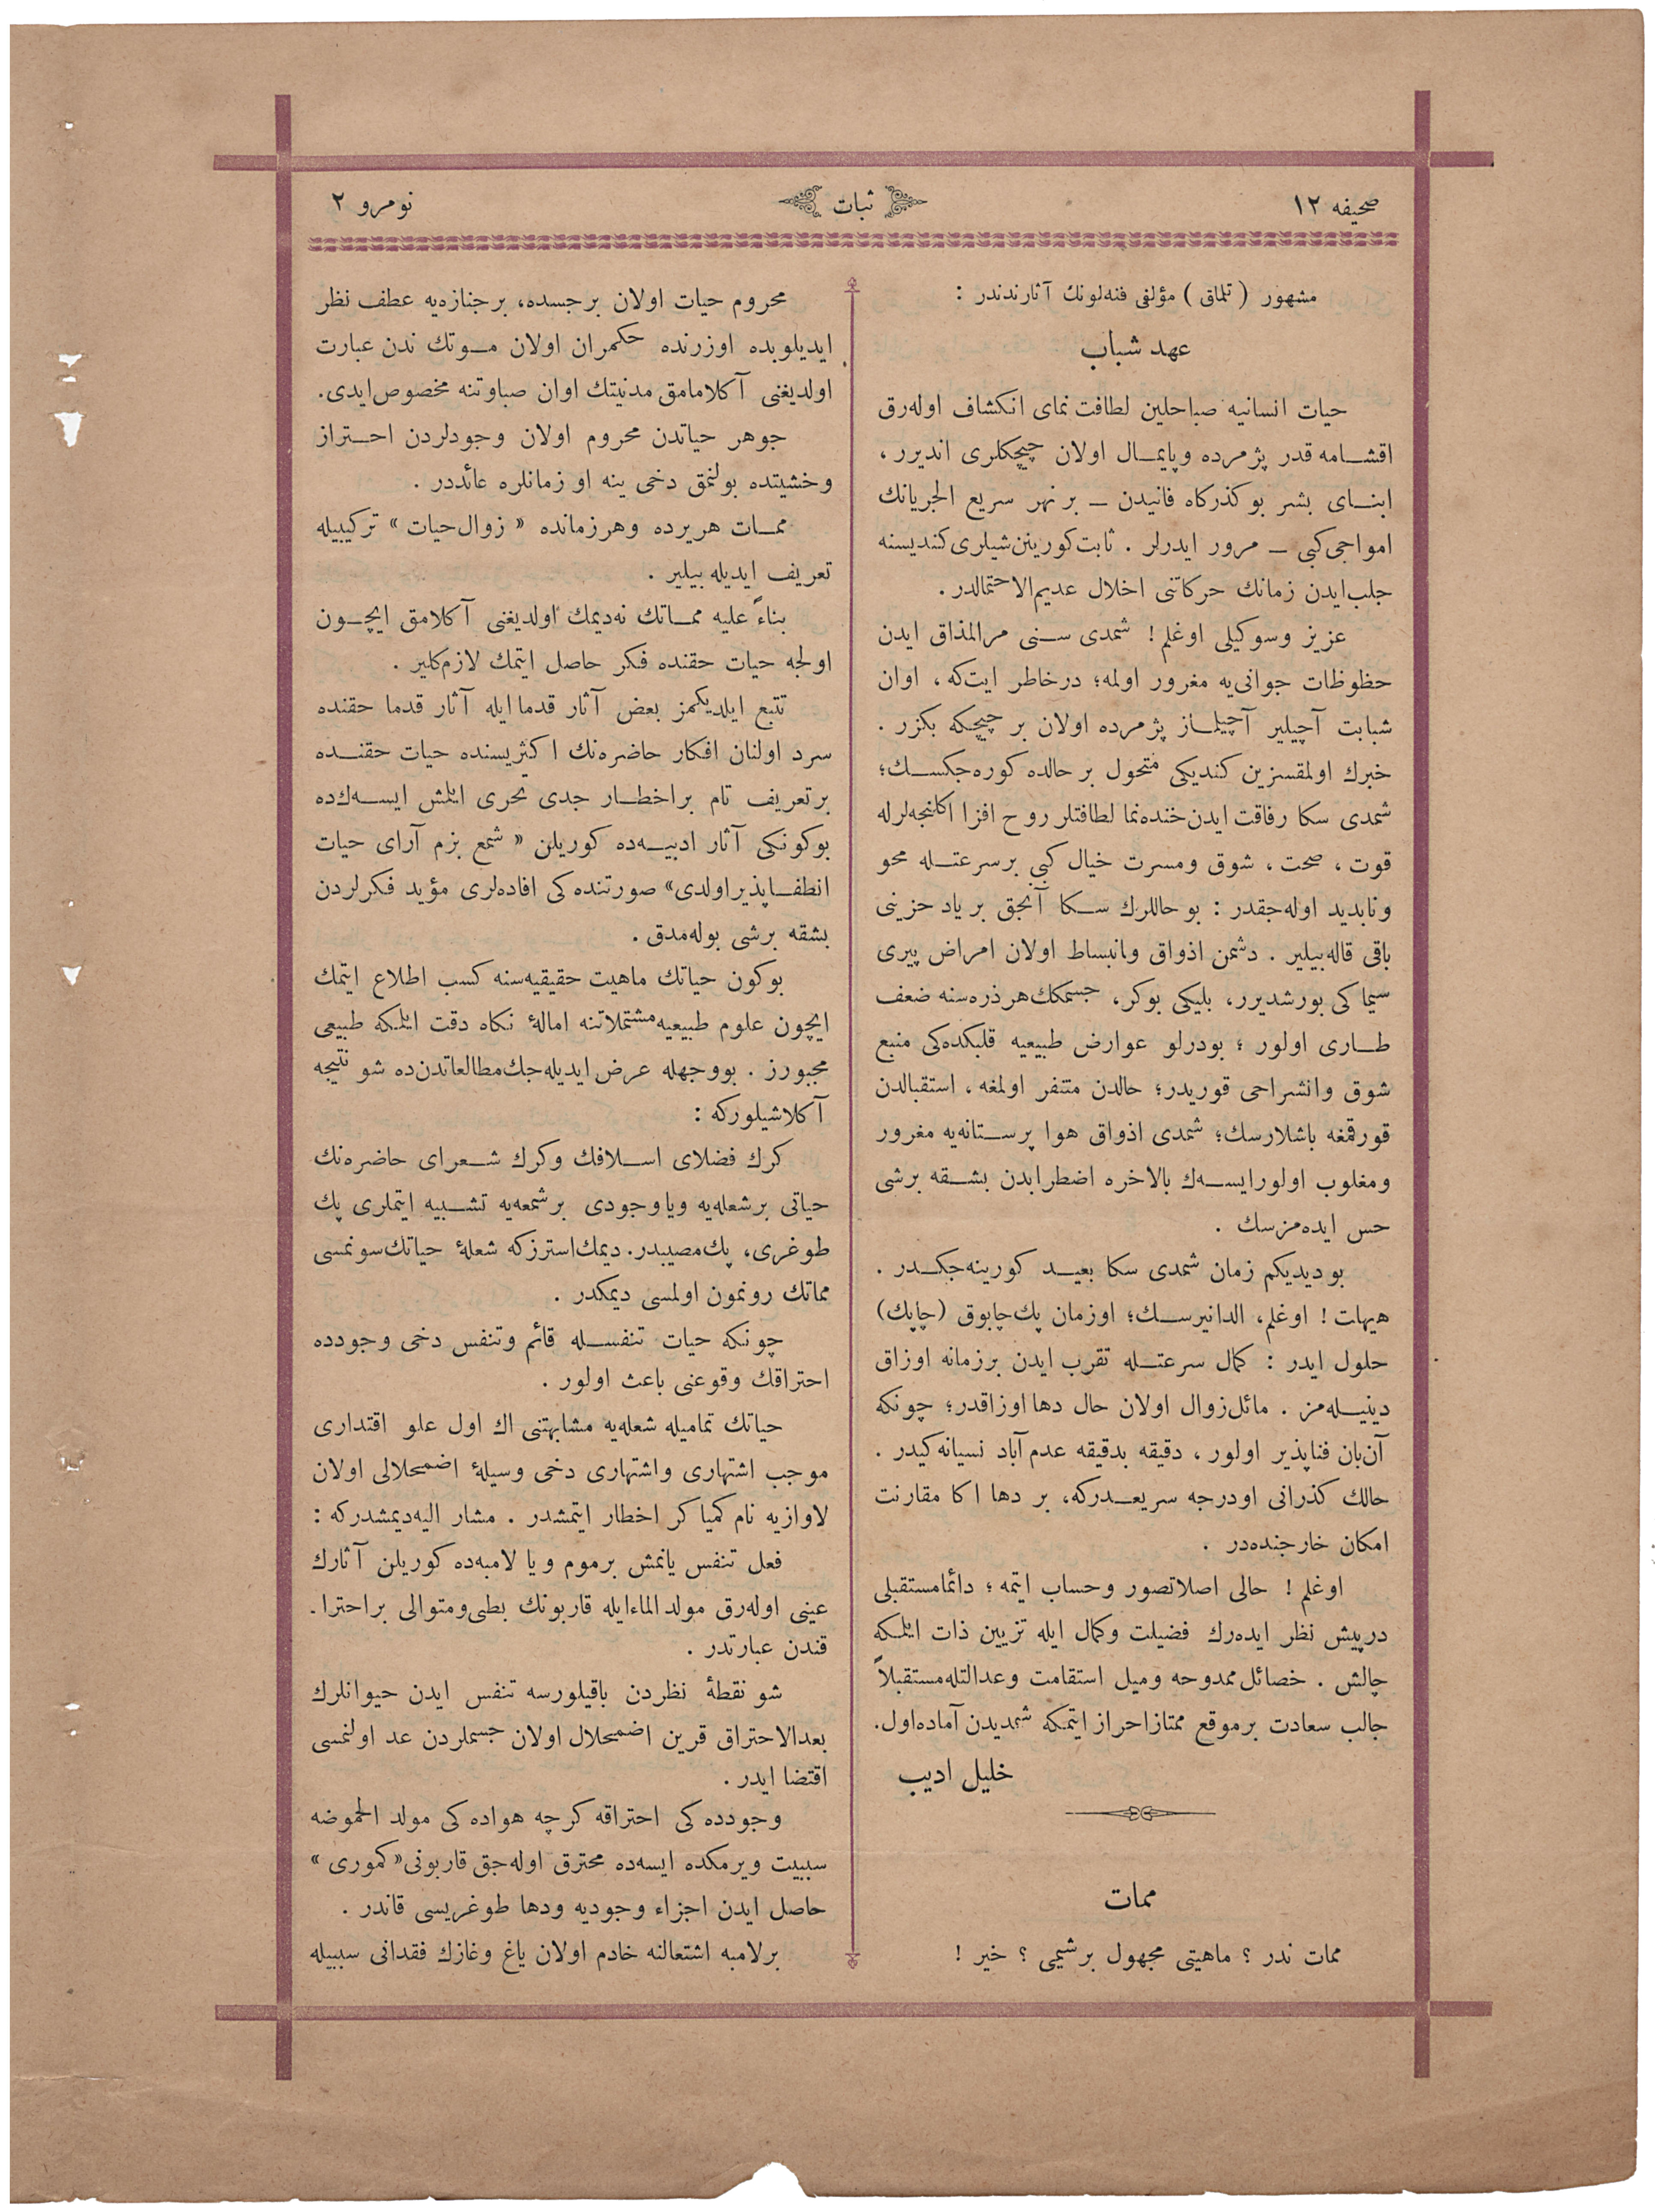 صحیفه ١٢
ثبات
نومرو ٢
مشهور (تلماق) مؤلفی فنه‌لونك آثارندندر :
عهد شباب
حیات انسانیه صباحلین لطافت نمای انکشاف اوله‌رق
اقشامه قدر پژمرده وپایمال اولان چیچکلری اندیرر ،
ابنای بشر بو کذرکاه فانیدن — بر نهر سریع الجریانك
امواجی کبی — مرور ایدرلر . ثابت کورینن شیلری کندیسنه
جلب ایدن زمانك حرکاتنی اخلال عدیم الاحتمالدر .
عزیز وسوکیلی اوغلم ! شمدی سنی مرالمذاق ایدن
حظوظات جوانی‌یه مغرور اولمه؛ درخاطر ایت‌که ، اوان
شبابت آچیلیر آچیلماز پژمرده اولان بر چیچکه بکزر .
خبرك اولمقسزین کندیکی متحول بر حالده کوره‌جکسك؛
شمدی سکا رفاقت ایدن خنده‌نما لطافتلر روح افزا اکلنجه‌لرله
قوت ، صحت ، شوق ومسرت خیال کبی برسرعتله محو
ونابدید اوله‌جقدر : بو حاللرك سکا آنجق بر یاد حزینی
باقی قاله‌بیلیر . دشمن اذواق وانبساط اولان امراض پیری
سیما کی بورشدیرر، بلیکی بوکر، جسمکك هر ذره‌سنه ضعف
طاری اولور ؛ بودرلو عوارض طبیعیه قلبکده‌کی منبع
شوق وانشراحی قوریدر؛ حالدن متنفر اولمغه ، استقبالدن
قورقمغه باشلارسك؛ شمدی اذواق هوا پرستانه‌یه مغرور
ومغلوب اولورایسه‌ك بالاخره اضطرابدن بشقه برشی
حس ایده‌مزسك .
بو دیدیکم زمان شمدی سکا بعید کورینه‌جکدر .
هیهات ! اوغلم، الدانیرسك؛ اوزمان پك چابوق (چاپك)
حلول ایدر : کمال سرعتله تقرب ایدن برزمانه اوزاق
دینیله‌مز . مائل زوال اولان حال دها اوزاقدر؛ چونکه
آن بان فناپذیر اولور ، دقیقه بدقیقه عدم آباد نسیانه کیدر .
حالك کذرانی اودرجه سریعدرکه، بر دها اکا مقارنت
امکان خارجنده‌در .
اوغلم ! حالی اصلاتصور وحساب ایتمه ؛ دائمامستقبلی
درپیش نظر ایده‌رك فضیلت وکمال ایله تزیین ذات ایلمکه
چالش . خصائل ممدوحه ومیل استقامت وعدالتله‌مستقبلاً
جالب سعادت برموقع ممتازاحراز ایتمکه شمدیدن آماده‌اول.
خلیل ادیب
ممات
ممات ندر ؟ ماهیتی مجهول برشیمی ؟ خیر !
محروم حیات اولان برجسده، برجنازه‌یه عطف نظر
ایدیلوبده اوزرنده حکمران اولان موتك ندن عبارت
اولدیغنی آکلامامق مدنیتك اوان صباوتنه مخصوص‌ایدی.
جوهر حیاتدن محروم اولان وجودلردن احتراز
وخشیتده بولنمق دخی ینه او زمانلره عائددر .
ممات هریرده وهرزمانده « زوال‌حیات » ترکیبیله
تعریف ایدیله بیلیر .
بناءً علیه مماتك نه‌دیمك اولدیغنی آکلامق ایچون
اولجه حیات حقنده فکر حاصل ایتمك لازم‌کلیر .
تتبع ایلدیکمز بعض آثار قدما ایله آثار قدما حقنده
سرد اولنان افکار حاضره‌نك اکثریسنده حیات حقنده
برتعریف تام براخطار جدی تحری ایلمش ایسه‌ك‌ده
بوکونکی آثار ادبیه‌ده کوریلن « شمع بزم آرای حیات
انطفاپذیراولدی» صورتنده‌کی افاده‌لری مؤید فکرلردن
بشقه برشی بوله‌مدق .
بوکون حیاتك ماهیت حقیقیه‌سنه کسب اطلاع ایتمك
ایچون علوم طبیعیه مشتملاتنه امالهٔ نکاه دقت ایلمکه طبیعی
مجبورز . بووجهله عرض ایدیله‌جك‌مطالعاتدن‌ده شو نتیجه
آکلاشیلورکه :
کرك فضلای اسلافك وکرك شعرای حاضره‌نك
حیاتی برشعله‌یه ویا وجودی برشمعه‌یه تشبیه ایتملری پك
طوغری، پك‌مصیبدر. دیمك‌استرزکه شعلهٔ حیاتك‌سونمسی
مماتك رونمون اولمسی دیمکدر .
چونکه حیات تنفسله قائم وتنفس دخی وجودده
احتراقك وقوعنی باعث اولور .
حیاتك تمامیله شعله‌یه مشابهتنی اك اول علو اقتداری
موجب اشتهاری واشتهاری دخی وسیلهٔ اضمحلالی اولان
لاوازیه نام کمیا کر اخطار ایتمشدر . مشار الیه‌دیمشدرکه :
فعل تنفس یانمش برموم ویا لامبه‌ده کوریلن آثارك
عینی اوله‌رق مولد الماءایله قاربونك بطی‌ومتوالی براحترا-
قندن عبارتدر .
شو نقطهٔ نظردن باقیلورسه تنفس ایدن حیوانلرك
بعدالاحتراق قرین اضمحلال اولان جسملردن عد اولنمسی
اقتضا ایدر .
وجودده‌کی احتراقه کرچه هواده‌کی مولد الحموضه
سببیت ویرمکده ایسه‌ده محترق اوله‌جق قاربونی«کموری »
حاصل ایدن اجزاء وجودیه ودها طوغریسی قاندر .
برلامبه اشتعالنه خادم اولان یاغ وغازك فقدانی سببیله